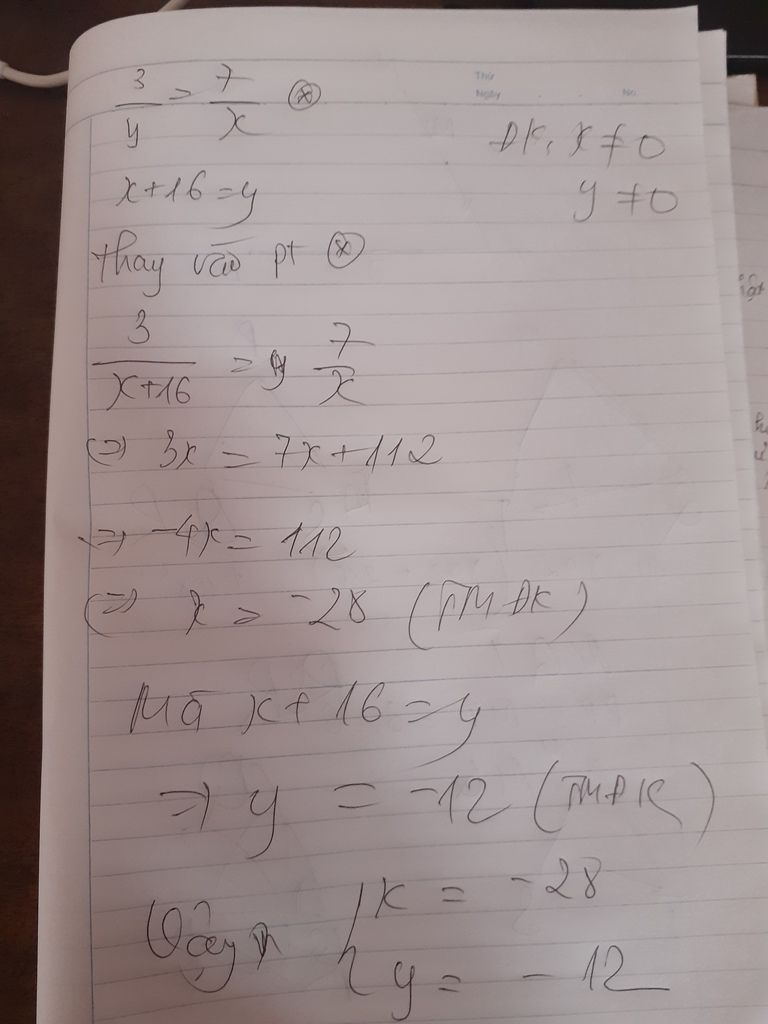 3/y = 7/x ⊛
Thứ
Ngày . . No.
ĐK, x ≠ 0
x+16 = y
y ≠ 0
thay vào pt ⊛
3/(x+16) = 7/x
(=) 3x = 7x+112
=) -4x = 112
(=) x = -28 (TMĐK)
Mà x + 16 = y
=) y = -12 (TMĐK)
Vậy { x = -28
y = -12